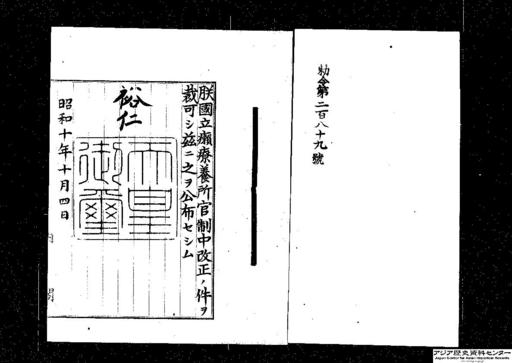 勅令第二百八十九號
朕國立癩療養所官制中改正ノ件ヲ
裁可シ茲ニ之ヲ公布セシム
裕仁
天皇
御璽
昭和十年十月四日
内閣
アジア歴史資料センター
Japan Center for Asian Historical Records